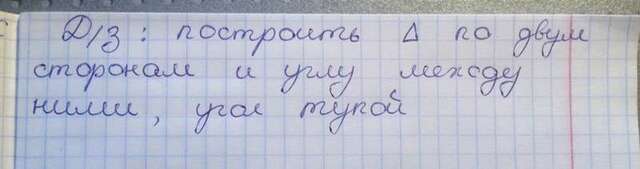 Д/З: построить Δ по двум
сторонам и углу между
ними, угол тупой